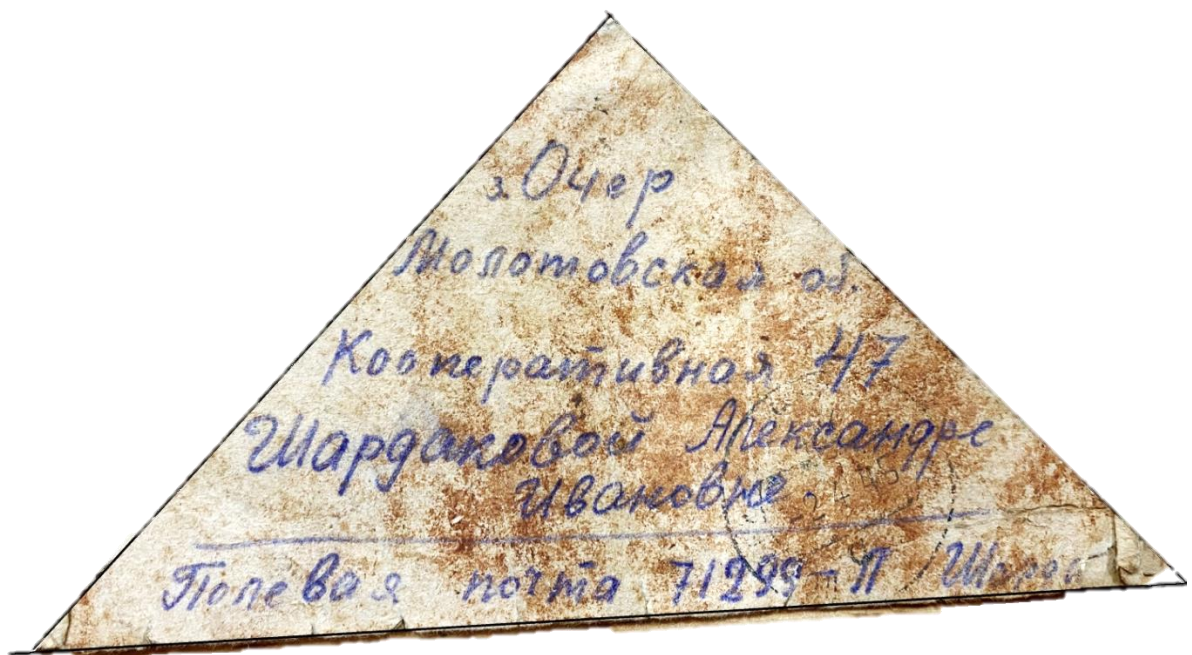 г. Очер
Молотовская об.
Кооперативная 47
Шардаковой Александре
Ивановне.
Полевая почта 71299-П